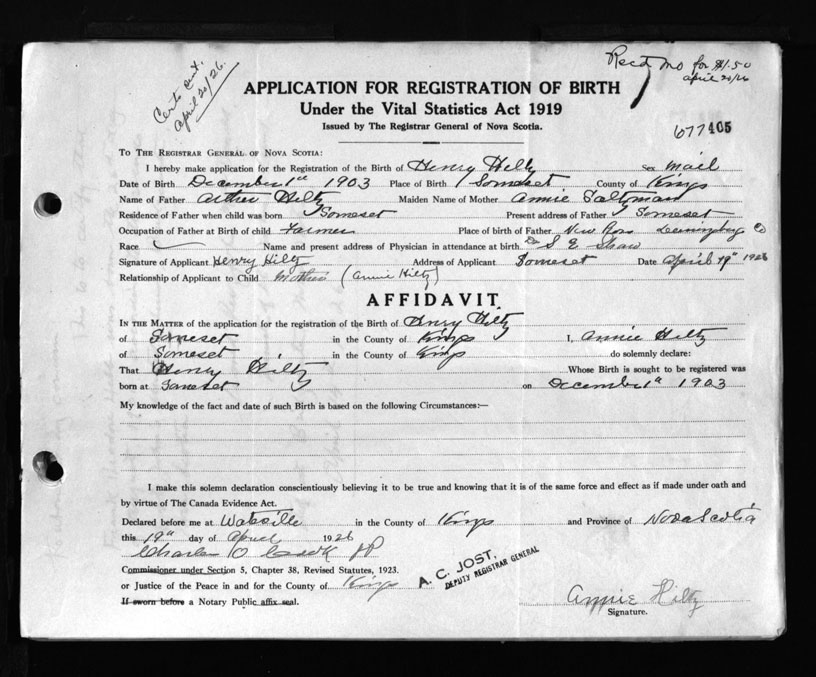 Certs sent.
april 20/26.
Recd mo for $1.50
april 20/26
APPLICATION FOR REGISTRATION OF BIRTH
Under the Vital Statistics Act 1919
Issued by The Registrar General of Nova Scotia.
677405
TO THE REGISTRAR GENERAL OF NOVA SCOTIA:
I hereby make application for the Registration of the Birth of Henry Hiltz Sex mail
Date of Birth December 1st 1903 Place of Birth Somerset County of Kings
Name of Father Arther Hiltz Maiden Name of Mother Annie Saltzman
Residence of Father when child was born Somerset Present address of Father Somerset
Occupation of Father at Birth of child Farmer Place of birth of Father New Ross Co
Race Name and present address of Physician in attendance at birth Dr S E Shaw
Signature of Applicant Henry Hiltz Address of Applicant Somerset Date April 19th 1926
Relationship of Applicant to Child Mother (Annie Hiltz)
AFFIDAVIT
IN THE MATTER of the application for the registration of the Birth of Henry Hiltz
of Somerset in the County of Kings I, Annie Hiltz
of Somerset in the County of Kings do solemnly declare:
That Henry Hiltz Whose Birth is sought to be registered was
born at Somerset on December 1st 1903
My knowledge of the fact and date of such Birth is based on the following Circumstances:—
I make this solemn declaration conscientiously believing it to be true and knowing that it is of the same force and effect as if made under oath and
by virtue of The Canada Evidence Act.
Declared before me at Watville in the County of Kings and Province of Nova Scotia
this 19th day of April 1926
Charles O Cook JP
Commissioner under Section 5, Chapter 38, Revised Statutes, 1923.
or Justice of the Peace in and for the County of Kings
If sworn before a Notary Public affix seal.
A. C. JOST,
DEPUTY REGISTRAR GENERAL
Annie Hiltz
Signature.